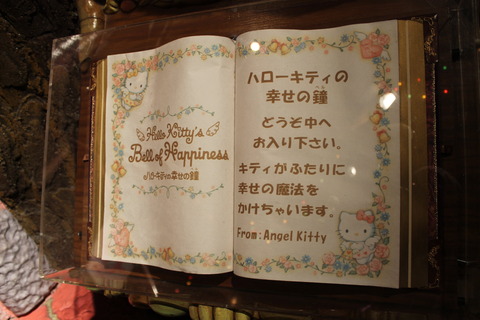 Hello Kitty's
Bell of Happiness
ハローキティの幸せの鐘
ハローキティの
幸せの鐘
ベル
どうぞ中へ
お入り下さい。
キティがふたりに
幸せの魔法を
かけちゃいます。
From:Angel Kitty